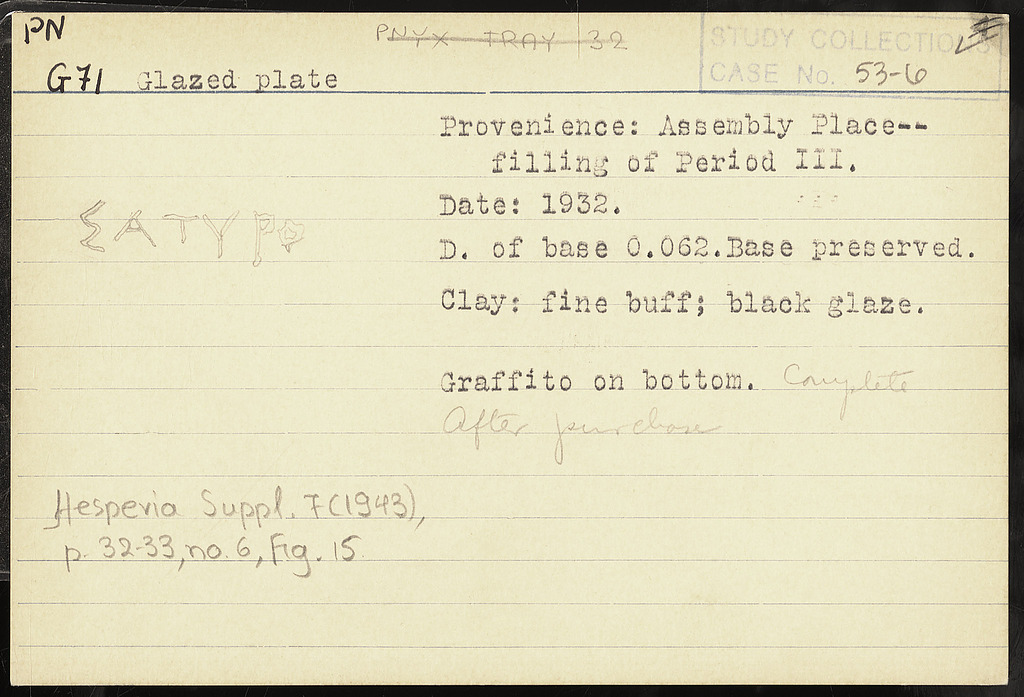 PN
PNYX TRAY 32
STUDY COLLECTIONS
CASE No. 53-6
G71 Glazed plate
Provenience: Assembly Place--
filling of Period III.
Date: 1932.
ΣΑΤΥΡΟ
D. of base 0.062.Base preserved.
Clay: fine buff; black glaze.
Graffito on bottom. Complete
After purchase
Hesperia Suppl. 7 (1943),
p. 32-33, no. 6, Fig. 15